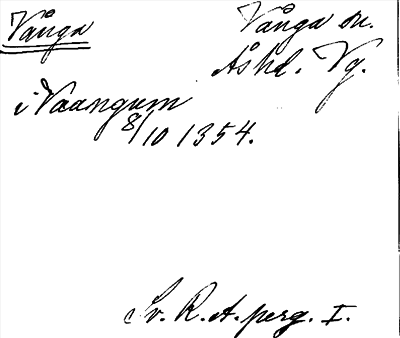 Vånga
Vånga sn.
Åshd. Vg.
i Vaangum
8/10 1354.
Sv. R. A. perg. I.